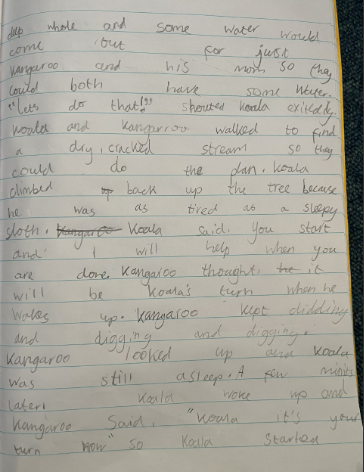 dep whole and some water would
come out for just
kangaroo and his mom so they
could both have some water.
"lets do that!" shouted koala exitedly
koala and kangarroo walked to find
a dry, cracked stream so they
could do the plan. koala
climbed back up the tree because
he was as tired as a sleepy
sloth. Koala said, you start
and I will help when you
are done. Kangaroo thought it
will be Koala's turn when he
wakes up. Kangaroo kept digging
and digging and digging.
Kangaroo looked up and koala
was still asleep. A few minits
later, Koala woke up and
Kangaroo said, "koala it's your
turn now" so Koala started